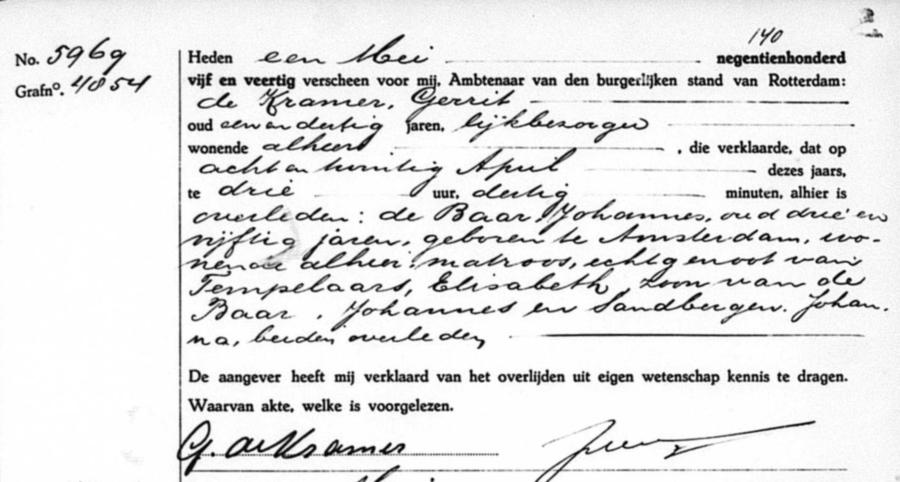 140
No. 5969
Grafno. 4854
Heden een Mei negentienhonderd
vijf en veertig verscheen voor mij, Ambtenaar van den burgerlijken stand van Rotterdam:
de Kramer, Gerrit
oud een en dertig jaren, lijkbezorger
wonende alhier, die verklaarde, dat op
acht en twintig April dezes jaars,
te drie uur, dertig minuten, alhier is
overleden: de Baar, Johannes, oud drie en
vijftig jaren, geboren te Amsterdam, wo-
nende alhier, matroos, echtgenoot van
Tempelaars, Elisabeth, zoon van de
Baar, Johannes en Sandbergen, Johan-
na, beiden overleden
De aangever heeft mij verklaard van het overlijden uit eigen wetenschap kennis te dragen.
Waarvan akte, welke is voorgelezen.
G. de Kramer